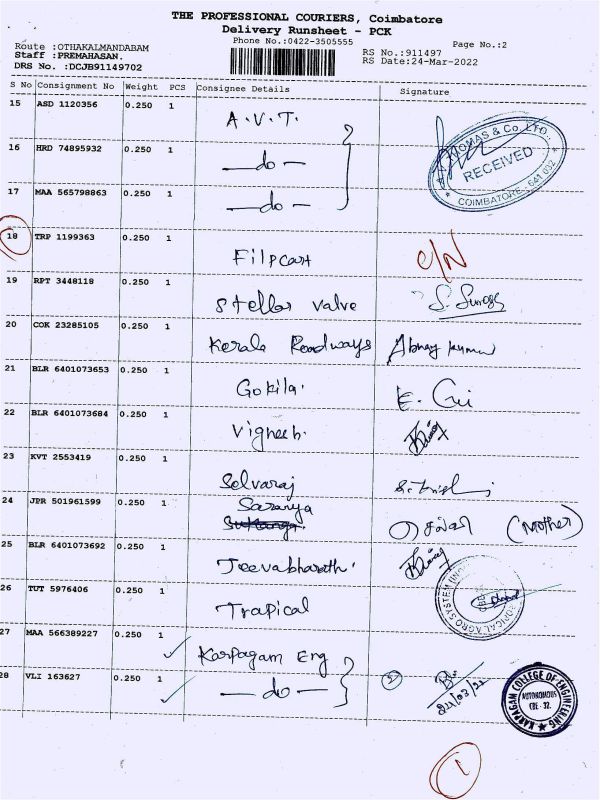 THE PROFESSIONAL COURIERS, Coimbatore
Delivery Runsheet - PCK
Phone No.:0422-3505555
Page No.:2
Route :OTHAKALMANDABAM
Staff :PREMAHASAN.
DRS No. :DCJB91149702
RS No.:911497
RS Date:24-Mar-2022
S No Consignment No Weight PCS Consignee Details Signature
15 ASD 1120356 0.250 1 A.V.T.
16 HRD 74895932 0.250 1 —do—
17 MAA 565798863 0.250 1 —do—
THOMAS & Co. LTD.,
RECEIVED
COIMBATORE - 641 032
18 TRP 1199363 0.250 1 Filpcart C/N
19 RPT 3448118 0.250 1 Stellar valve S.
20 COK 23285105 0.250 1 Kerala Roadways Abhay
21 BLR 6401073653 0.250 1 Gokila. E.
22 BLR 6401073684 0.250 1 Vignesh.
23 KVT 2553419 0.250 1 Selvaraj
24 JPR 501961599 0.250 1 Saranya (Mother)
25 BLR 6401073692 0.250 1 Jeevabharath.
26 TUT 5976406 0.250 1 Trapical
TROPICAL AGRO SYSTEM
27 MAA 566389227 0.250 1 Karpagam Eng
28 VLI 163627 0.250 1 —do— 2
24/03/22
KARPAGAM COLLEGE OF ENGINEERING
AUTONOMOUS
CBE - 32.
1